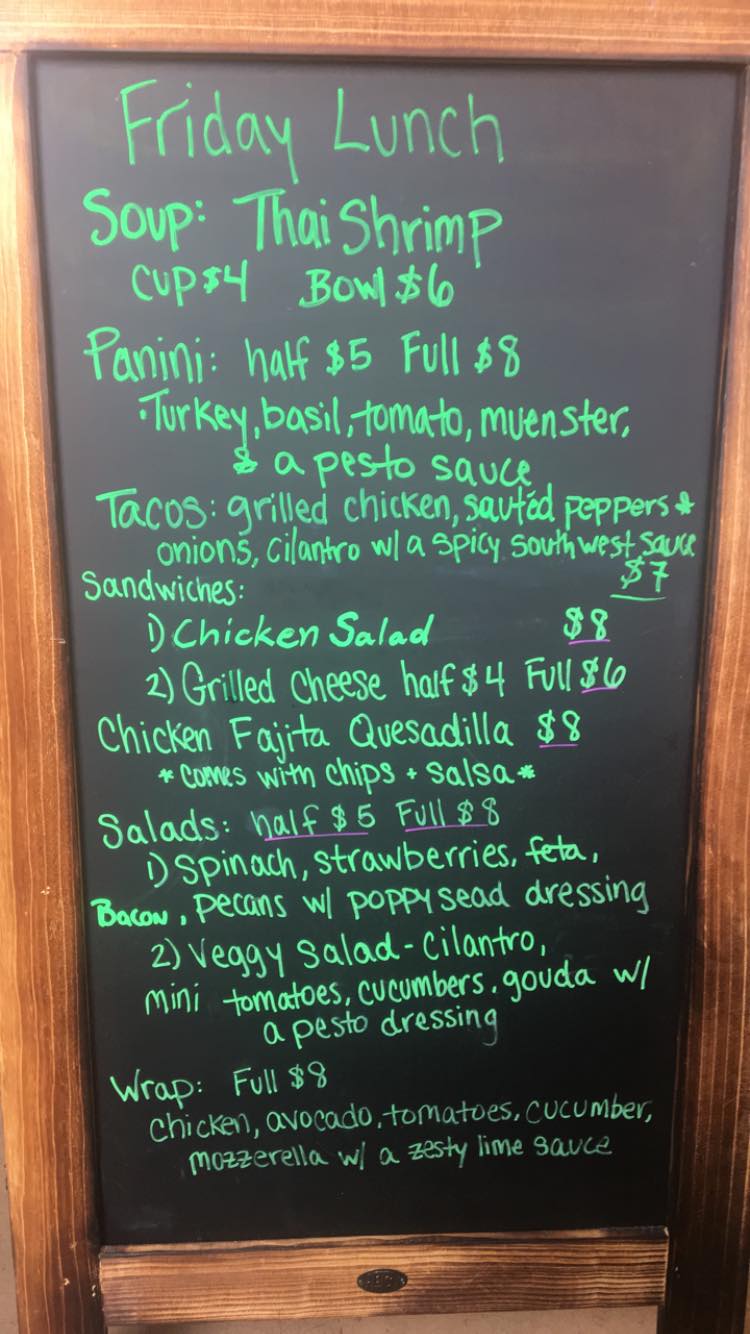 Friday Lunch
Soup: Thai Shrimp
Cup $4 Bowl $6
Panini: half $5 Full $8
• Turkey, basil, tomato, muenster,
& a pesto sauce
Tacos: grilled chicken, sautéd peppers &
onions, cilantro w/ a spicy southwest sauce
$7
Sandwiches:
1) Chicken Salad $8
2) Grilled Cheese half $4 Full $6
Chicken Fajita Quesadilla $8
* comes with chips + salsa *
Salads: half $5 Full $8
1) Spinach, strawberries, feta,
Bacon, pecans w/ poppysead dressing
2) Veggy Salad - Cilantro,
mini tomatoes, cucumbers, gouda w/
a pesto dressing
Wrap: Full $8
chicken, avocado, tomatoes, cucumber,
mozzerella w/ a zesty lime sauce